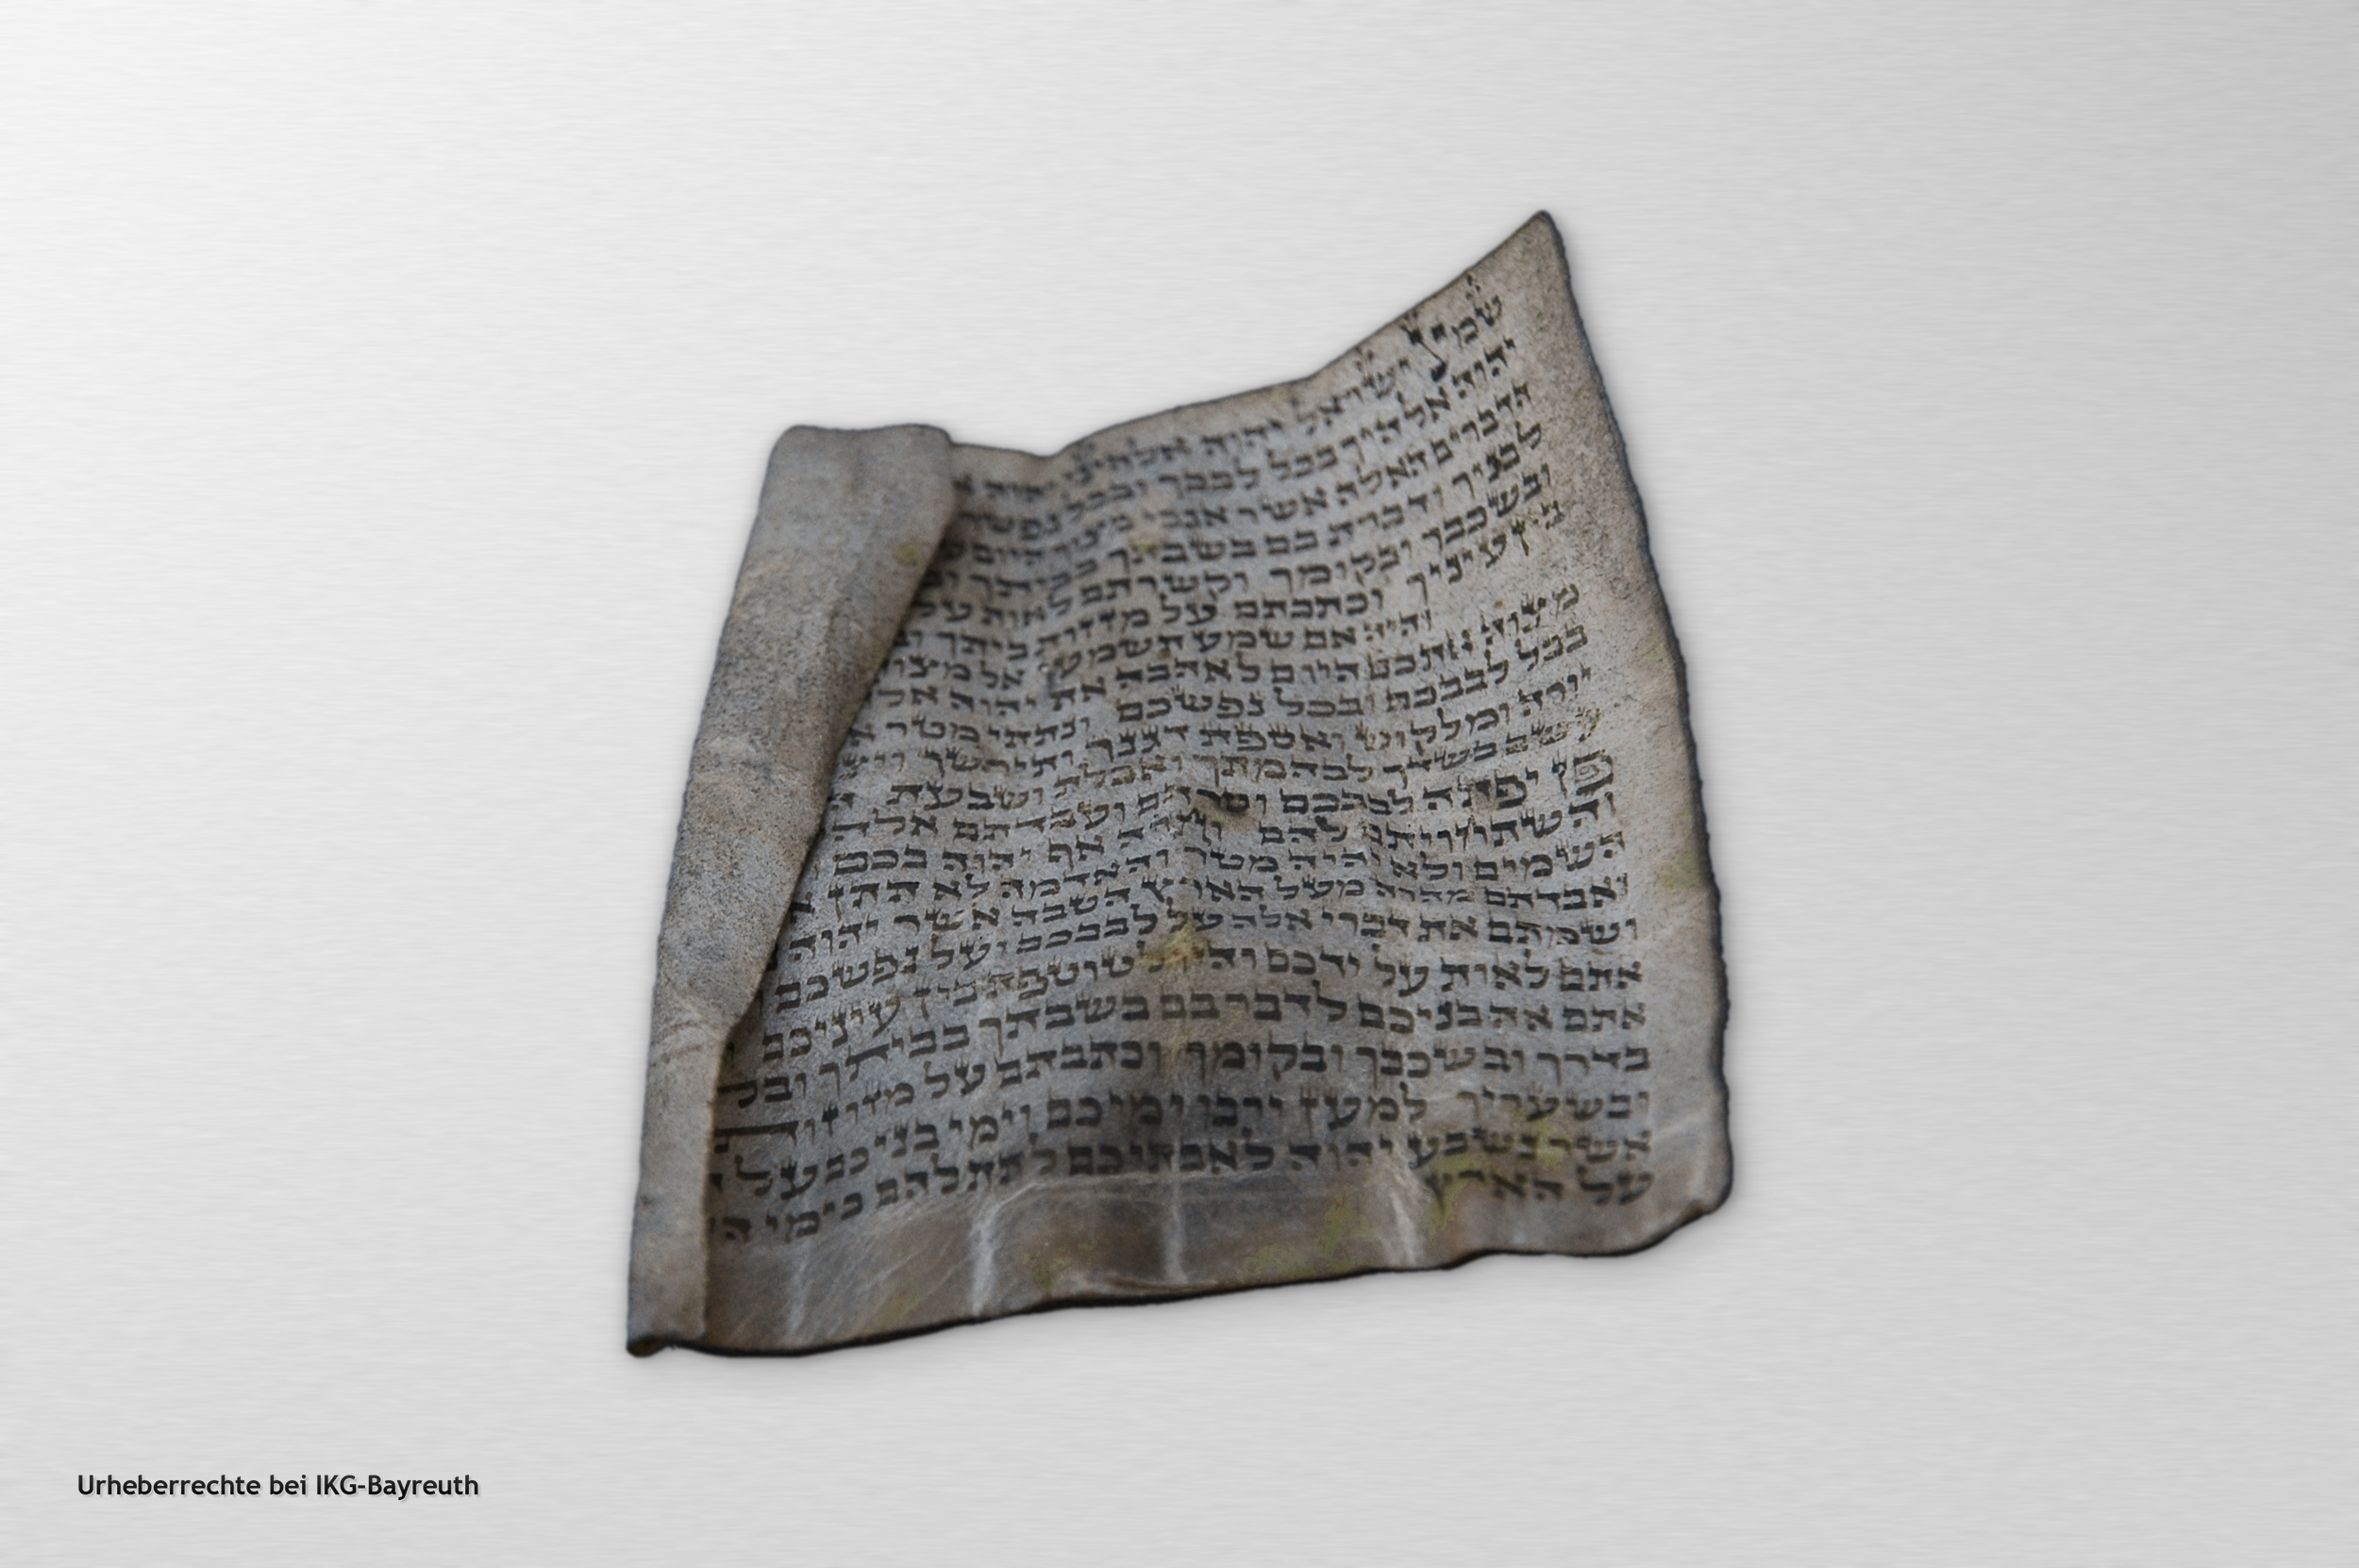 שמע ישראל יהוה אלהינו יהוה א
יהוה אלהיך בכל לבבך ובכל נפשך
הדברים האלה אשר אנכי מצוך היום
לבניך ודברת בם בשבתך בביתך וב
ובשכבך ובקומך וקשרתם לאות על
בין עיניך וכתבתם על מזזות ביתך וב
והיה אם שמע תשמעו אל מצו
מצוה אתכם היום לאהבה את יהוה אל
בכל לבבכם ובכל נפשכם ונתתי מטר א
יורה ומלקוש ואספת דגנך ותירשך ויצ
עשב בשדך לבהמתך ואכלת ושבעת ה
פן יפתה לבבכם וסרתם ועבדתם אלה
והשתחויתם להם וחרה אף יהוה בכם
השמים ולא יהיה מטר והאדמה לא תתן א
ואבדתם מהרה מעל הארץ הטבה אשר יהוה
ושמתם את דברי אלה על לבבכם ועל נפשכם
אתם לאות על ידכם והיו לטוטפת בין עיניכם
אתם את בניכם לדבר בם בשבתך בביתך ובל
בדרך ובשכבך ובקומך וכתבתם על מזוזות
ובשעריך למען ירבו ימיכם וימי בניכם על
אשר נשבע יהוה לאבתיכם לתת להם כימי הש
על הארץ
Urheberrechte bei IKG-Bayreuth